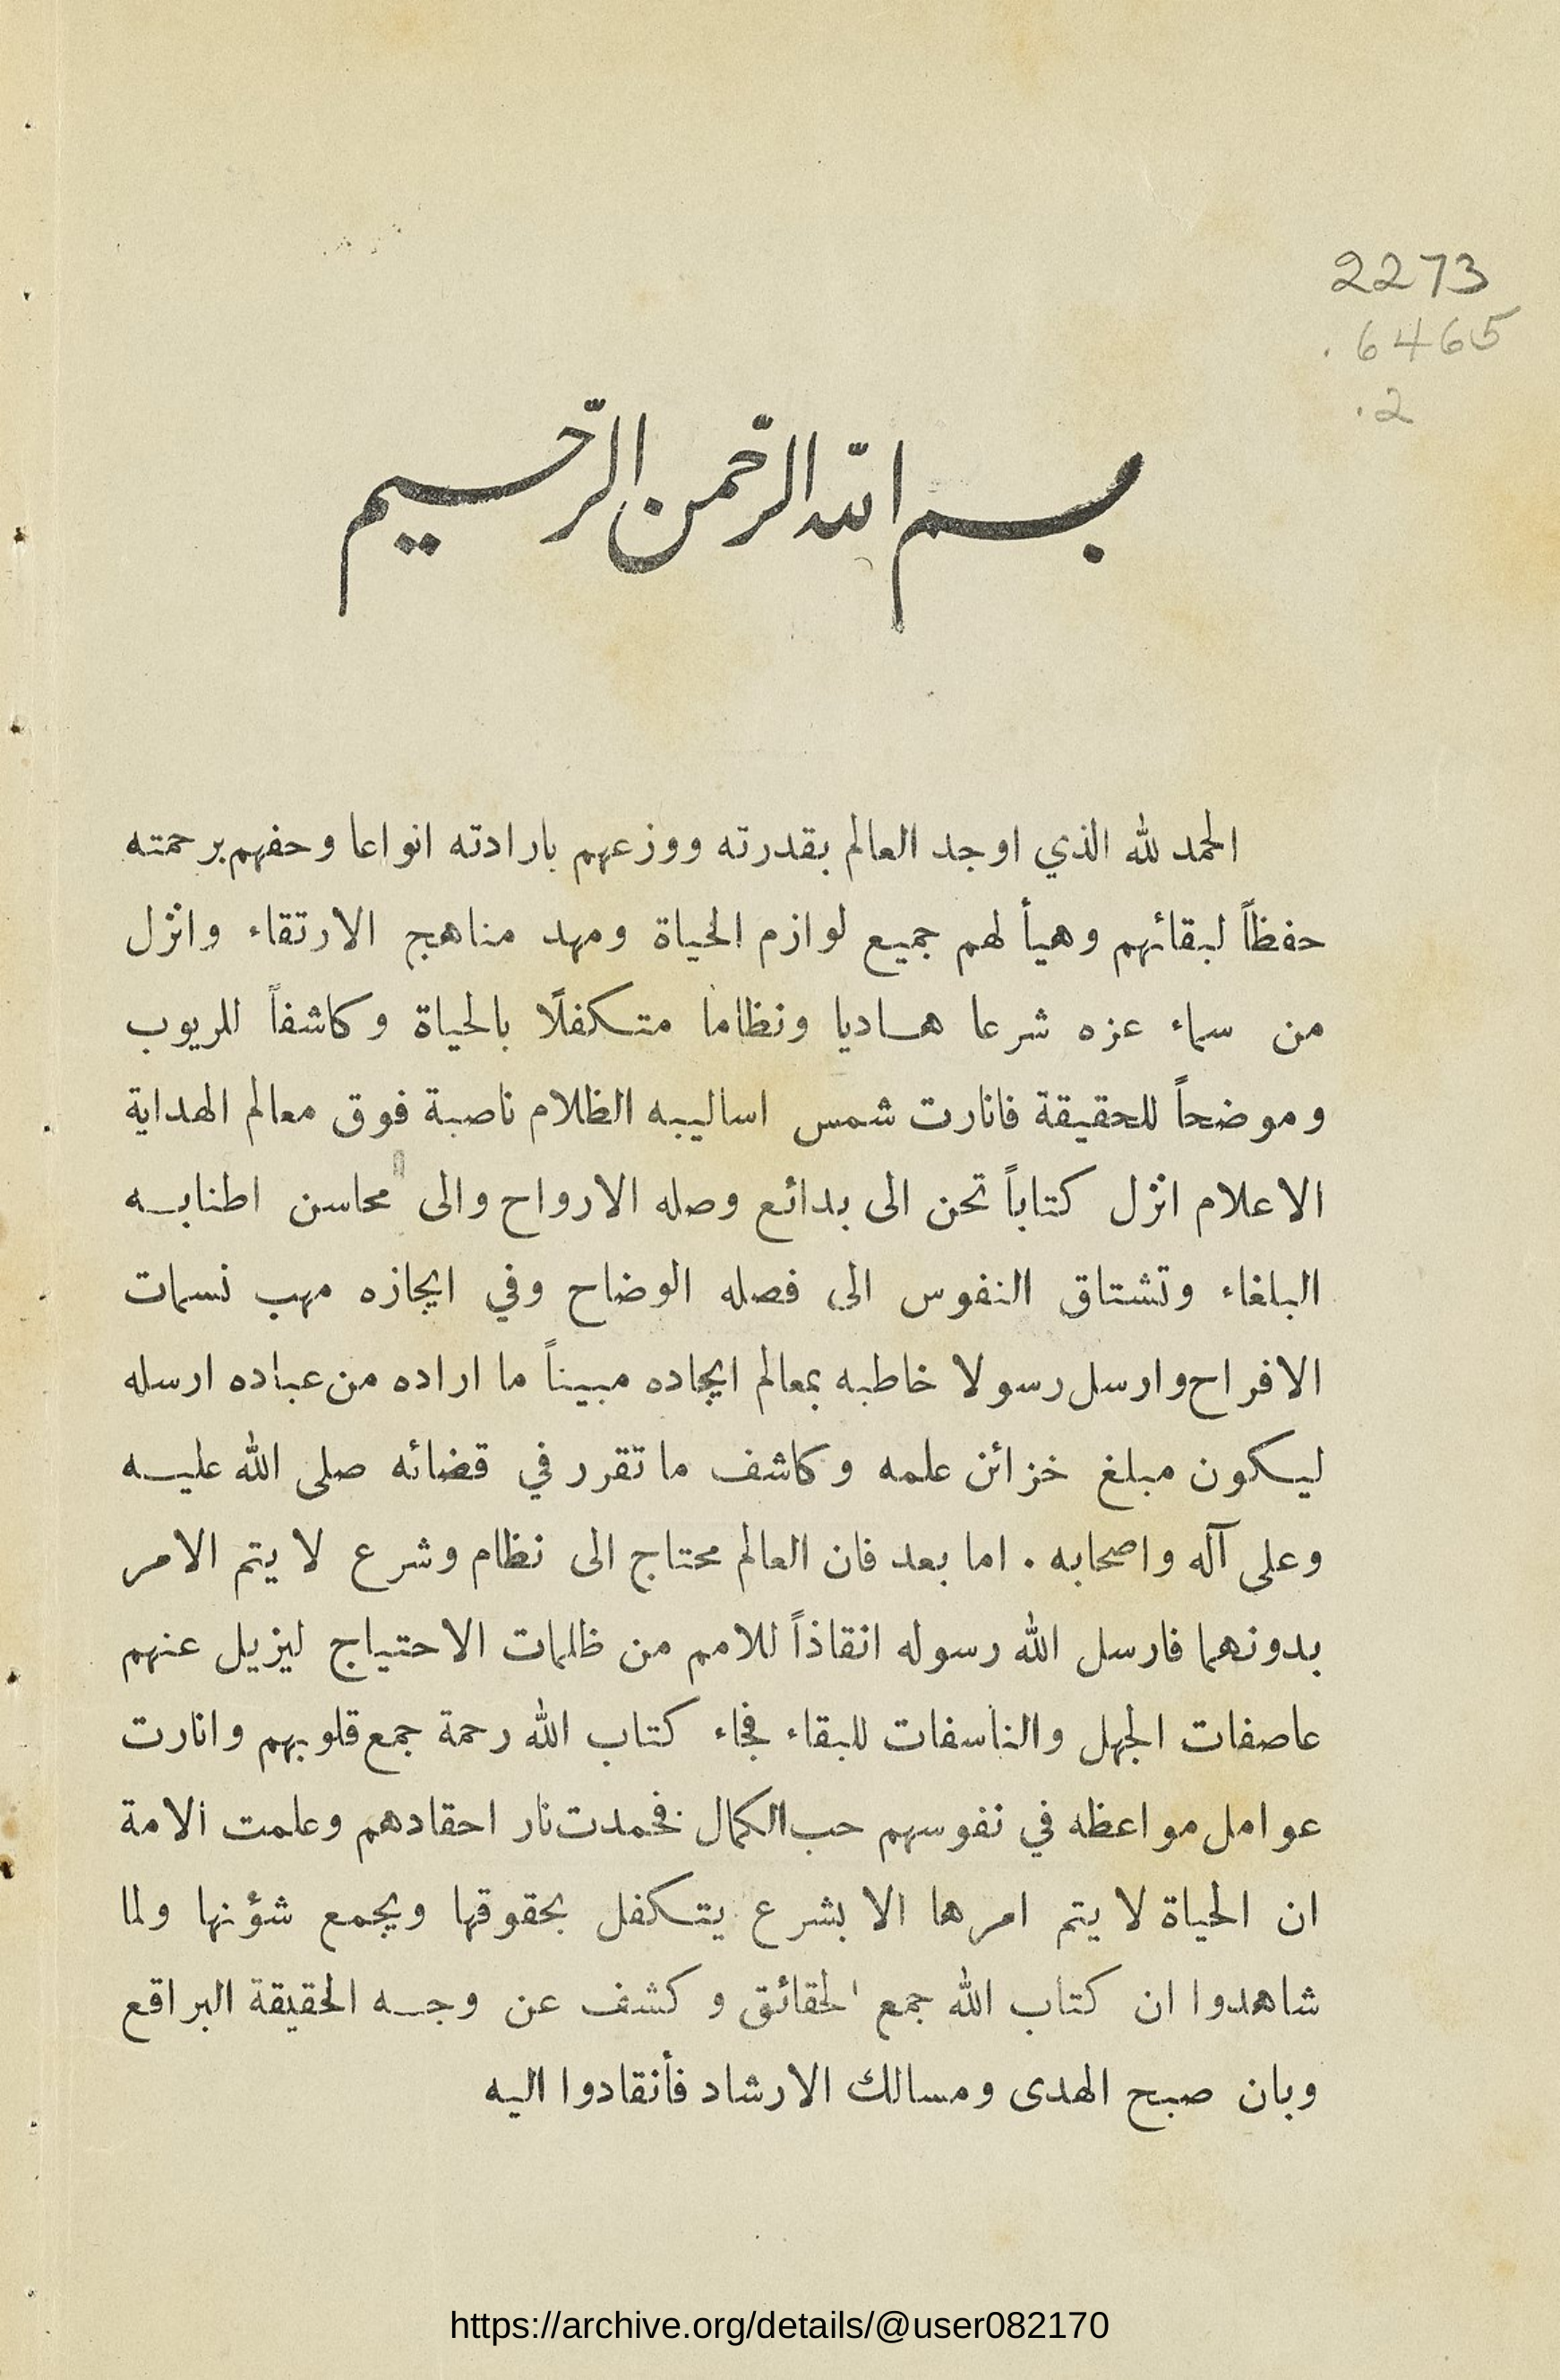 2273
.6465
.2
بسم الله الرّحمن الرّحيم
الحمد لله الذي اوجد العالم بقدرته ووزعهم بارادته انواعا وحفهم برحمته
حفظاً لبقائهم وهيأ لهم جميع لوازم الحياة ومهد مناهج الارتقاء وانزل
من سماء عزه شرعا هاديا ونظاما متكفلًا بالحياة وكاشفاً للريوب
وموضحاً للحقيقة فانارت شمس اساليبه الظلام ناصبة فوق معالم الهداية
الاعلام انزل كتاباً تحن الى بدائع وصله الارواح والى محاسن اطنابه
البلغاء وتشتاق النفوس الى فصله الوضاح وفي ايجازه مهب نسمات
الافراح وارسل رسولا خاطبه بمعالم ايجاده مبيناً ما اراده من عباده ارسله
ليكون مبلغ خزائن علمه وكاشف ما تقرر في قضائه صلى الله عليه
وعلى آله واصحابه . اما بعد فان العالم محتاج الى نظام وشرع لا يتم الامر
بدونهما فارسل الله رسوله انقاذاً للامم من ظلمات الاحتياج ليزيل عنهم
عاصفات الجهل والناسفات للبقاء فجاء كتاب الله رحمة جمع قلوبهم وانارت
عوامل مواعظه في نفوسهم حب الكمال فخمدت نار احقادهم وعلمت الامة
ان الحياة لا يتم امرها الا بشرع يتكفل بحقوقها ويجمع شؤنها ولما
شاهدوا ان كتاب الله جمع الحقائق وكشف عن وجه الحقيقة البراقع
وبان صبح الهدى ومسالك الارشاد فأنقادوا اليه
https://archive.org/details/@user082170